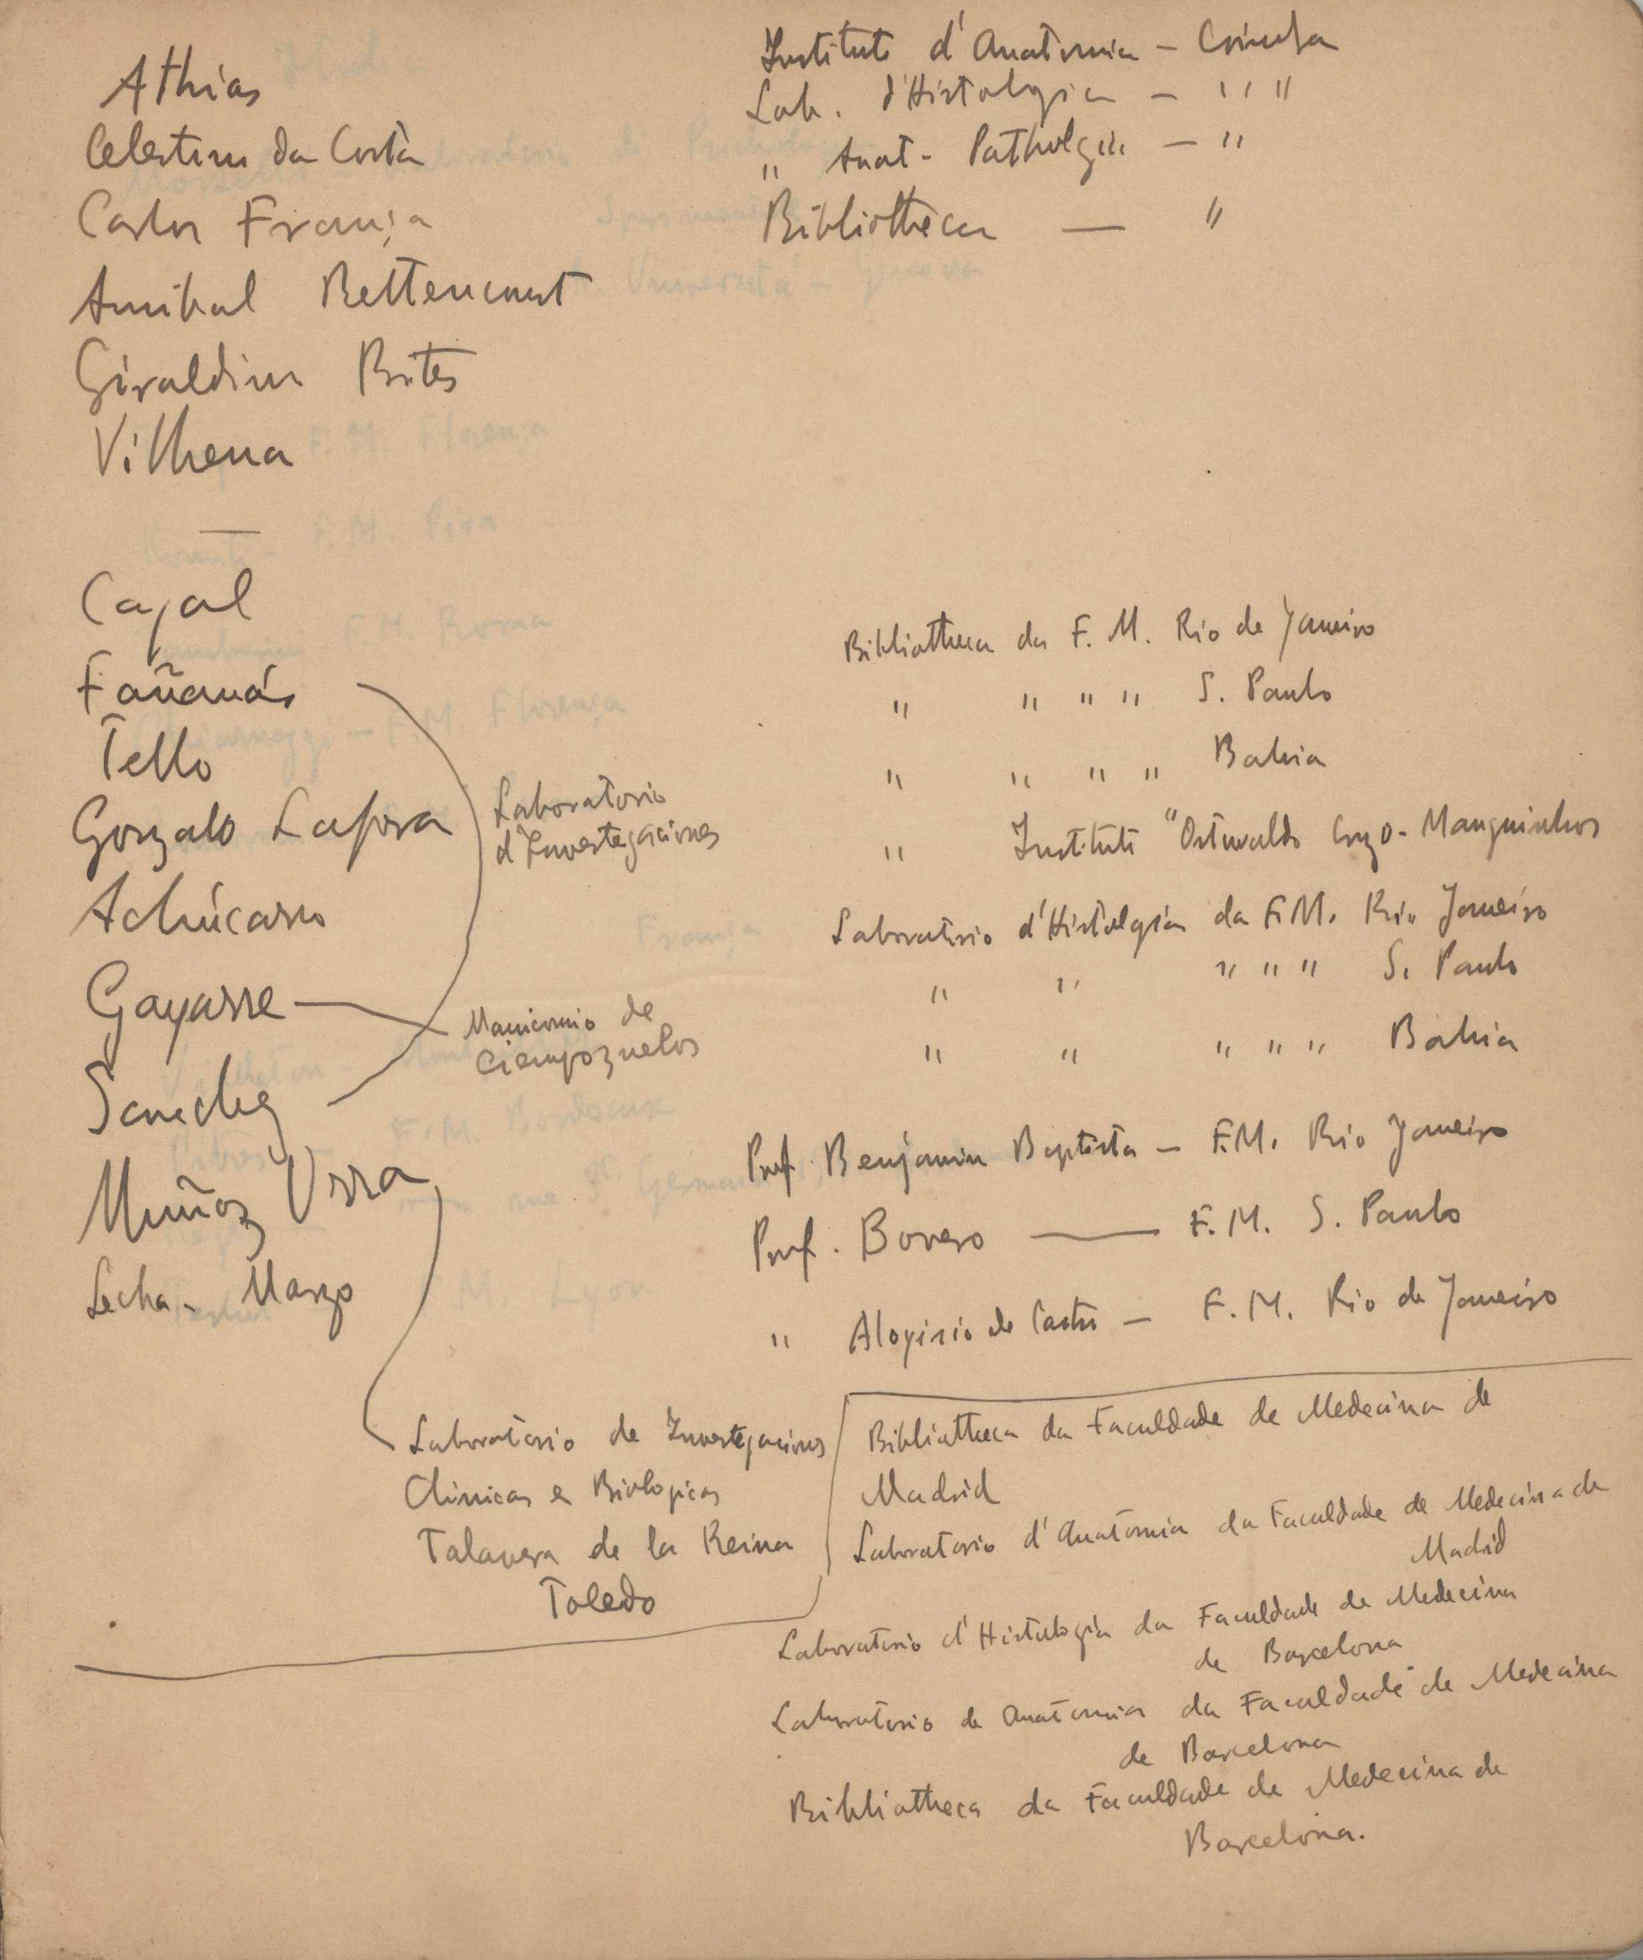 Athias
Celestino da Costa
Carlos França
Annibal Bettencourt
Giraldino Brites
Vilhena
Instituto d'Anatomia — Coimbra
Lab. d'Histologia — " "
" Anat. Pathologia — "
Bibliotheca — "
Cajal
Fañanás
Tello
Gonzalo Lafora
Achúcarro
Gayarre
Sanchez
Muñoz Urra
Lecha-Marzo
Laboratorio
d'Investigaciones
Manicomio de
Ciempozuelos
Laboratorio de Investigaciones
Clinicas e Biologicas
Talavera de la Reina
Toledo
Bibliotheca da F. M. Rio de Janeiro
" " " " S. Paulo
" " " " Bahia
" Instituto "Ostwaldo Cruz o-Manguinhos
Laboratorio d'Histologia da F.M. Rio Janeiro
" " " " " S. Paulo
" " " " " Bahia
Prof. Benjamin Baptista — F.M. Rio Janeiro
Prof. Bovero — F.M. S. Paulo
" Aloysio de Castro — F.M. Rio de Janeiro
Bibliotheca da Faculdade de Medecina de
Madrid
Laboratorio d'Anatomia da Faculdade de Medecina de
Madrid
Laboratorio d'Histologia da Faculdade de Medecina
de Barcelona
Laboratorio de Anatomia da Faculdade de Medecina
de Barcelona
Bibliotheca da Faculdade de Medecina de
Barcelona.